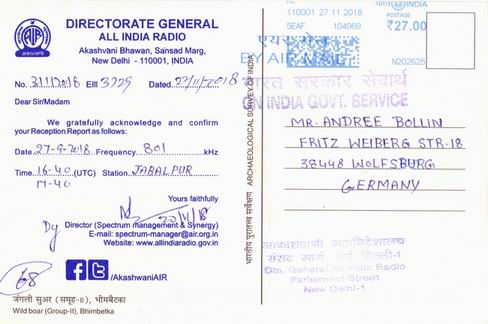 DIRECTORATE GENERAL
ALL INDIA RADIO
Akashvani Bhawan, Sansad Marg,
New Delhi - 110001, INDIA
No. 31/1/2018 EIII 3729 Dated 22/11/2018
Dear Sir/Madam
We gratefully acknowledge and confirm
your Reception Report as follows:
Date 27-9-2018 Frequency 801 kHz
Time 16-40 (UTC) Station JABALPUR
17-40
Yours faithfully
20/11/18
Dy Director (Spectrum management & Synergy)
E-mail: spectrum-manager@air.org.in
Website: www.allindiaradio.gov.in
68
/AkashvaniAIR
जंगली सुअर (समूह-II), भीमबेटका
Wild boar (Group-II), Bhimbetka
भारतीय पुरातत्व सर्वेक्षण ARCHAEOLOGICAL SURVEY OF INDIA
110001 27 11 2018
5EAF 104969
POSTAGE
₹27.00
N202625
एयर मेल
BY AIR MAIL
भारत सरकार सेवार्थ
ON INDIA GOVT. SERVICE
MR. ANDREE BOLLIN
FRITZ WEIBERG STR. 18
38448 WOLFSBURG
GERMANY
आकाशवाणी महानिदेशालय
संसद मार्ग, नई दिल्ली-1
Dte. General All India Radio
Parliament Street
New Delhi-1